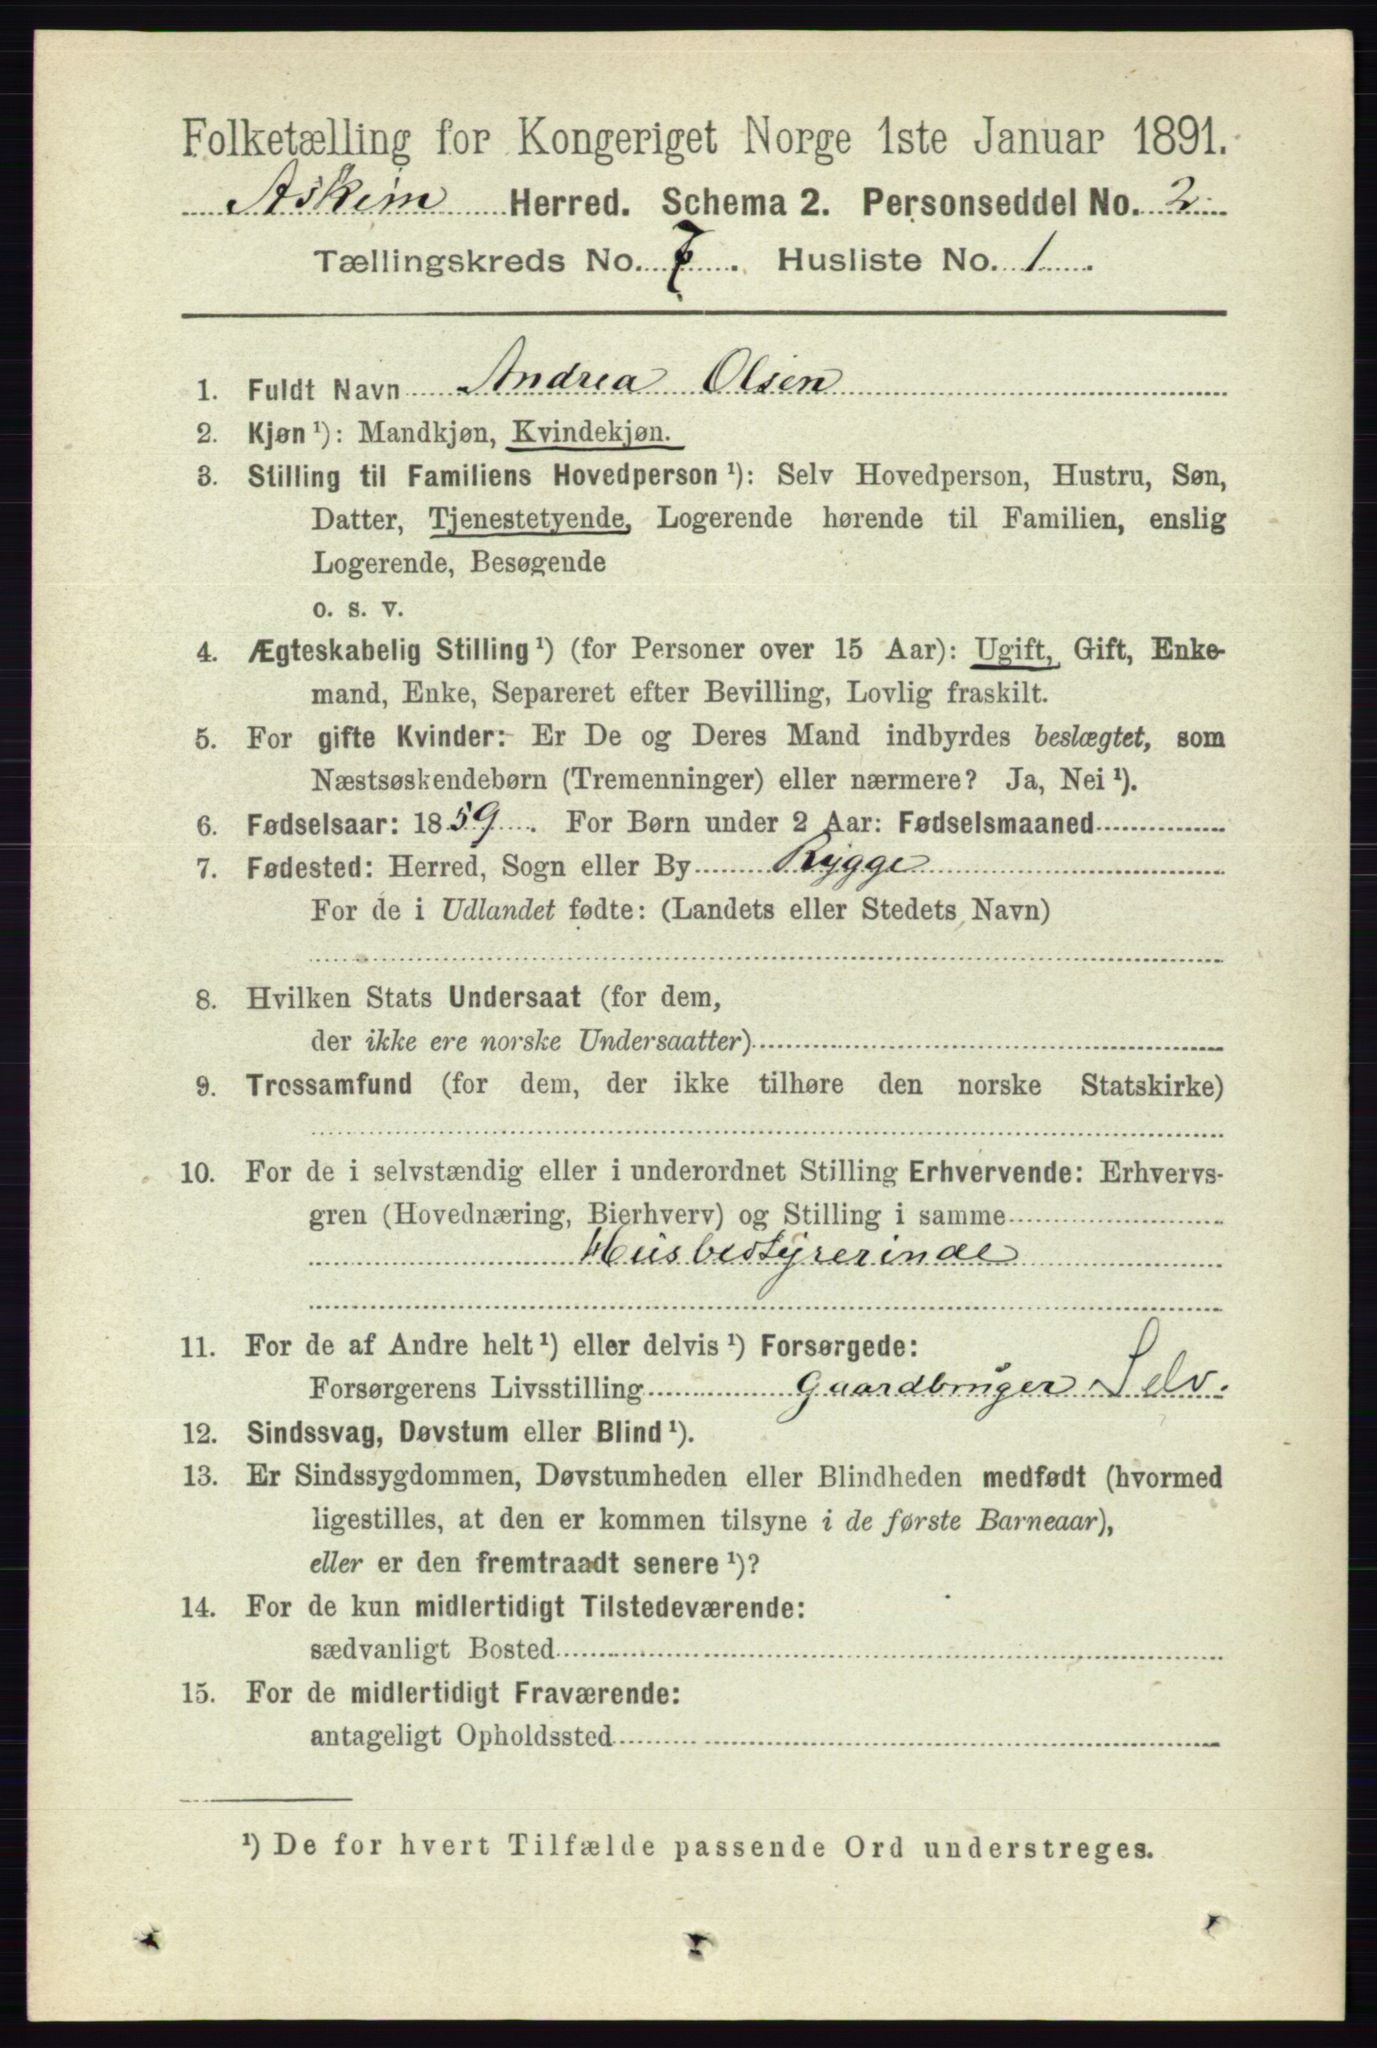 Folketælling for Kongeriget Norge 1ste Januar 1891.
Askim Herred. Schema 2. Personseddel No. 2
Tællingskreds No. 7. Husliste No. 1.
1. Fuldt Navn Andrea Olsen
2. Kjøn ¹): Mandkjøn, Kvindekjøn.
3. Stilling til Familiens Hovedperson ¹): Selv Hovedperson, Hustru, Søn,
Datter, Tjenestetyende, Logerende hørende til Familien, enslig
Logerende, Besøgende
o. s. v.
4. Ægteskabelig Stilling ¹) (for Personer over 15 Aar): Ugift, Gift, Enke-
mand, Enke, Separeret efter Bevilling, Lovlig fraskilt.
5. For gifte Kvinder: Er De og Deres Mand indbyrdes beslægtet, som
Næstsøskendebørn (Tremenninger) eller nærmere? Ja, Nei ¹).
6. Fødselsaar: 1859. For Børn under 2 Aar: Fødselsmaaned
7. Fødested: Herred, Sogn eller By Rygge
For de i Udlandet fødte: (Landets eller Stedets Navn)
8. Hvilken Stats Undersaat (for dem,
der ikke ere norske Undersaatter)
9. Trossamfund (for dem, der ikke tilhøre den norske Statskirke)
10. For de i selvstændig eller i underordnet Stilling Erhvervende: Erhvervs-
gren (Hovednæring, Bierhverv) og Stilling i samme
Husbestyrerinde
11. For de af Andre helt ¹) eller delvis ¹) Forsørgede:
Forsørgerens Livsstilling Gaardbruger Selv.
12. Sindssvag, Døvstum eller Blind ¹).
13. Er Sindssygdommen, Døvstumheden eller Blindheden medfødt (hvormed
ligestilles, at den er kommen tilsyne i de første Barneaar),
eller er den fremtraadt senere ¹)?
14. For de kun midlertidigt Tilstedeværende:
sædvanligt Bosted
15. For de midlertidigt Fraværende:
antageligt Opholdssted
¹) De for hvert Tilfælde passende Ord understreges.